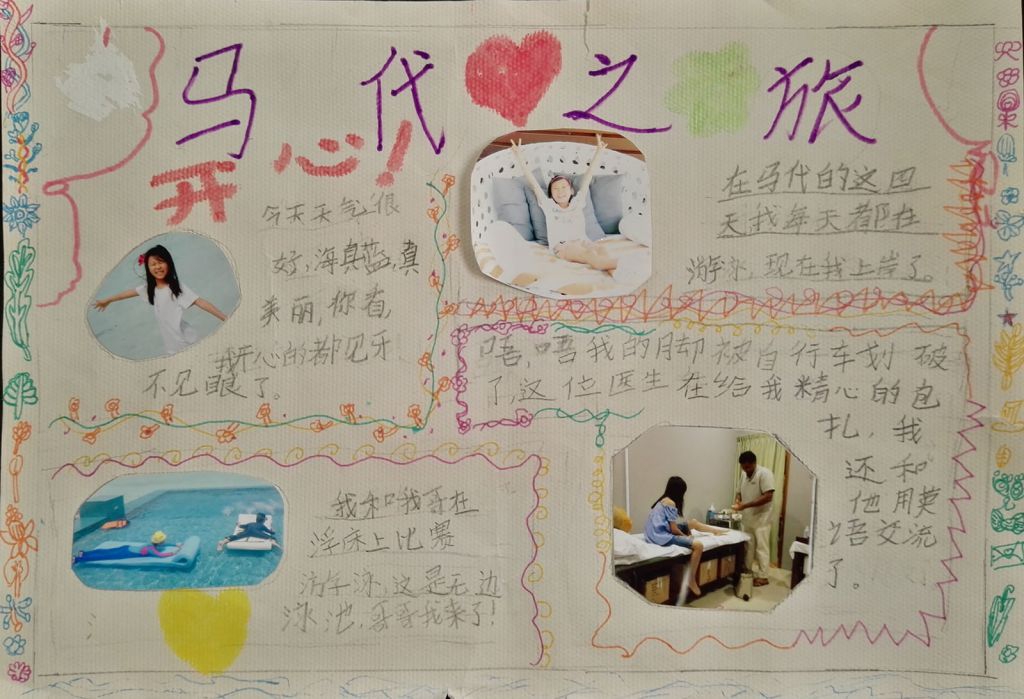 马代之旅
开心!
今天天气很
好,海真蓝,真
美丽,你看,
我开心的都见牙
不见眼了。
在马代的这四
天我每天都在
游泳,现在我上岸了。
唔,唔我的脚被自行车划破
了,这位医生在给我精心的包
扎,我
还和
他用英
语交流
了。
我和我哥在
浮床上比赛
游泳,这是无边
泳池,哥哥我来了!